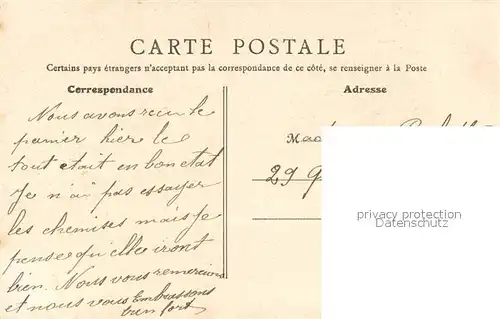 CARTE POSTALE
Certains pays étrangers n'acceptant pas la correspondance de ce côté, se renseigner à la Poste
Correspondance
Nous avons recu le
panier hier le
tout etait en bon etat
Je n'ai pas essayer
les chemises mais je
pense qu'elles iront
bien. Nous vous remercions
et nous vous Embrassons
bien fort
Adresse
29
privacy protection
Datenschutz